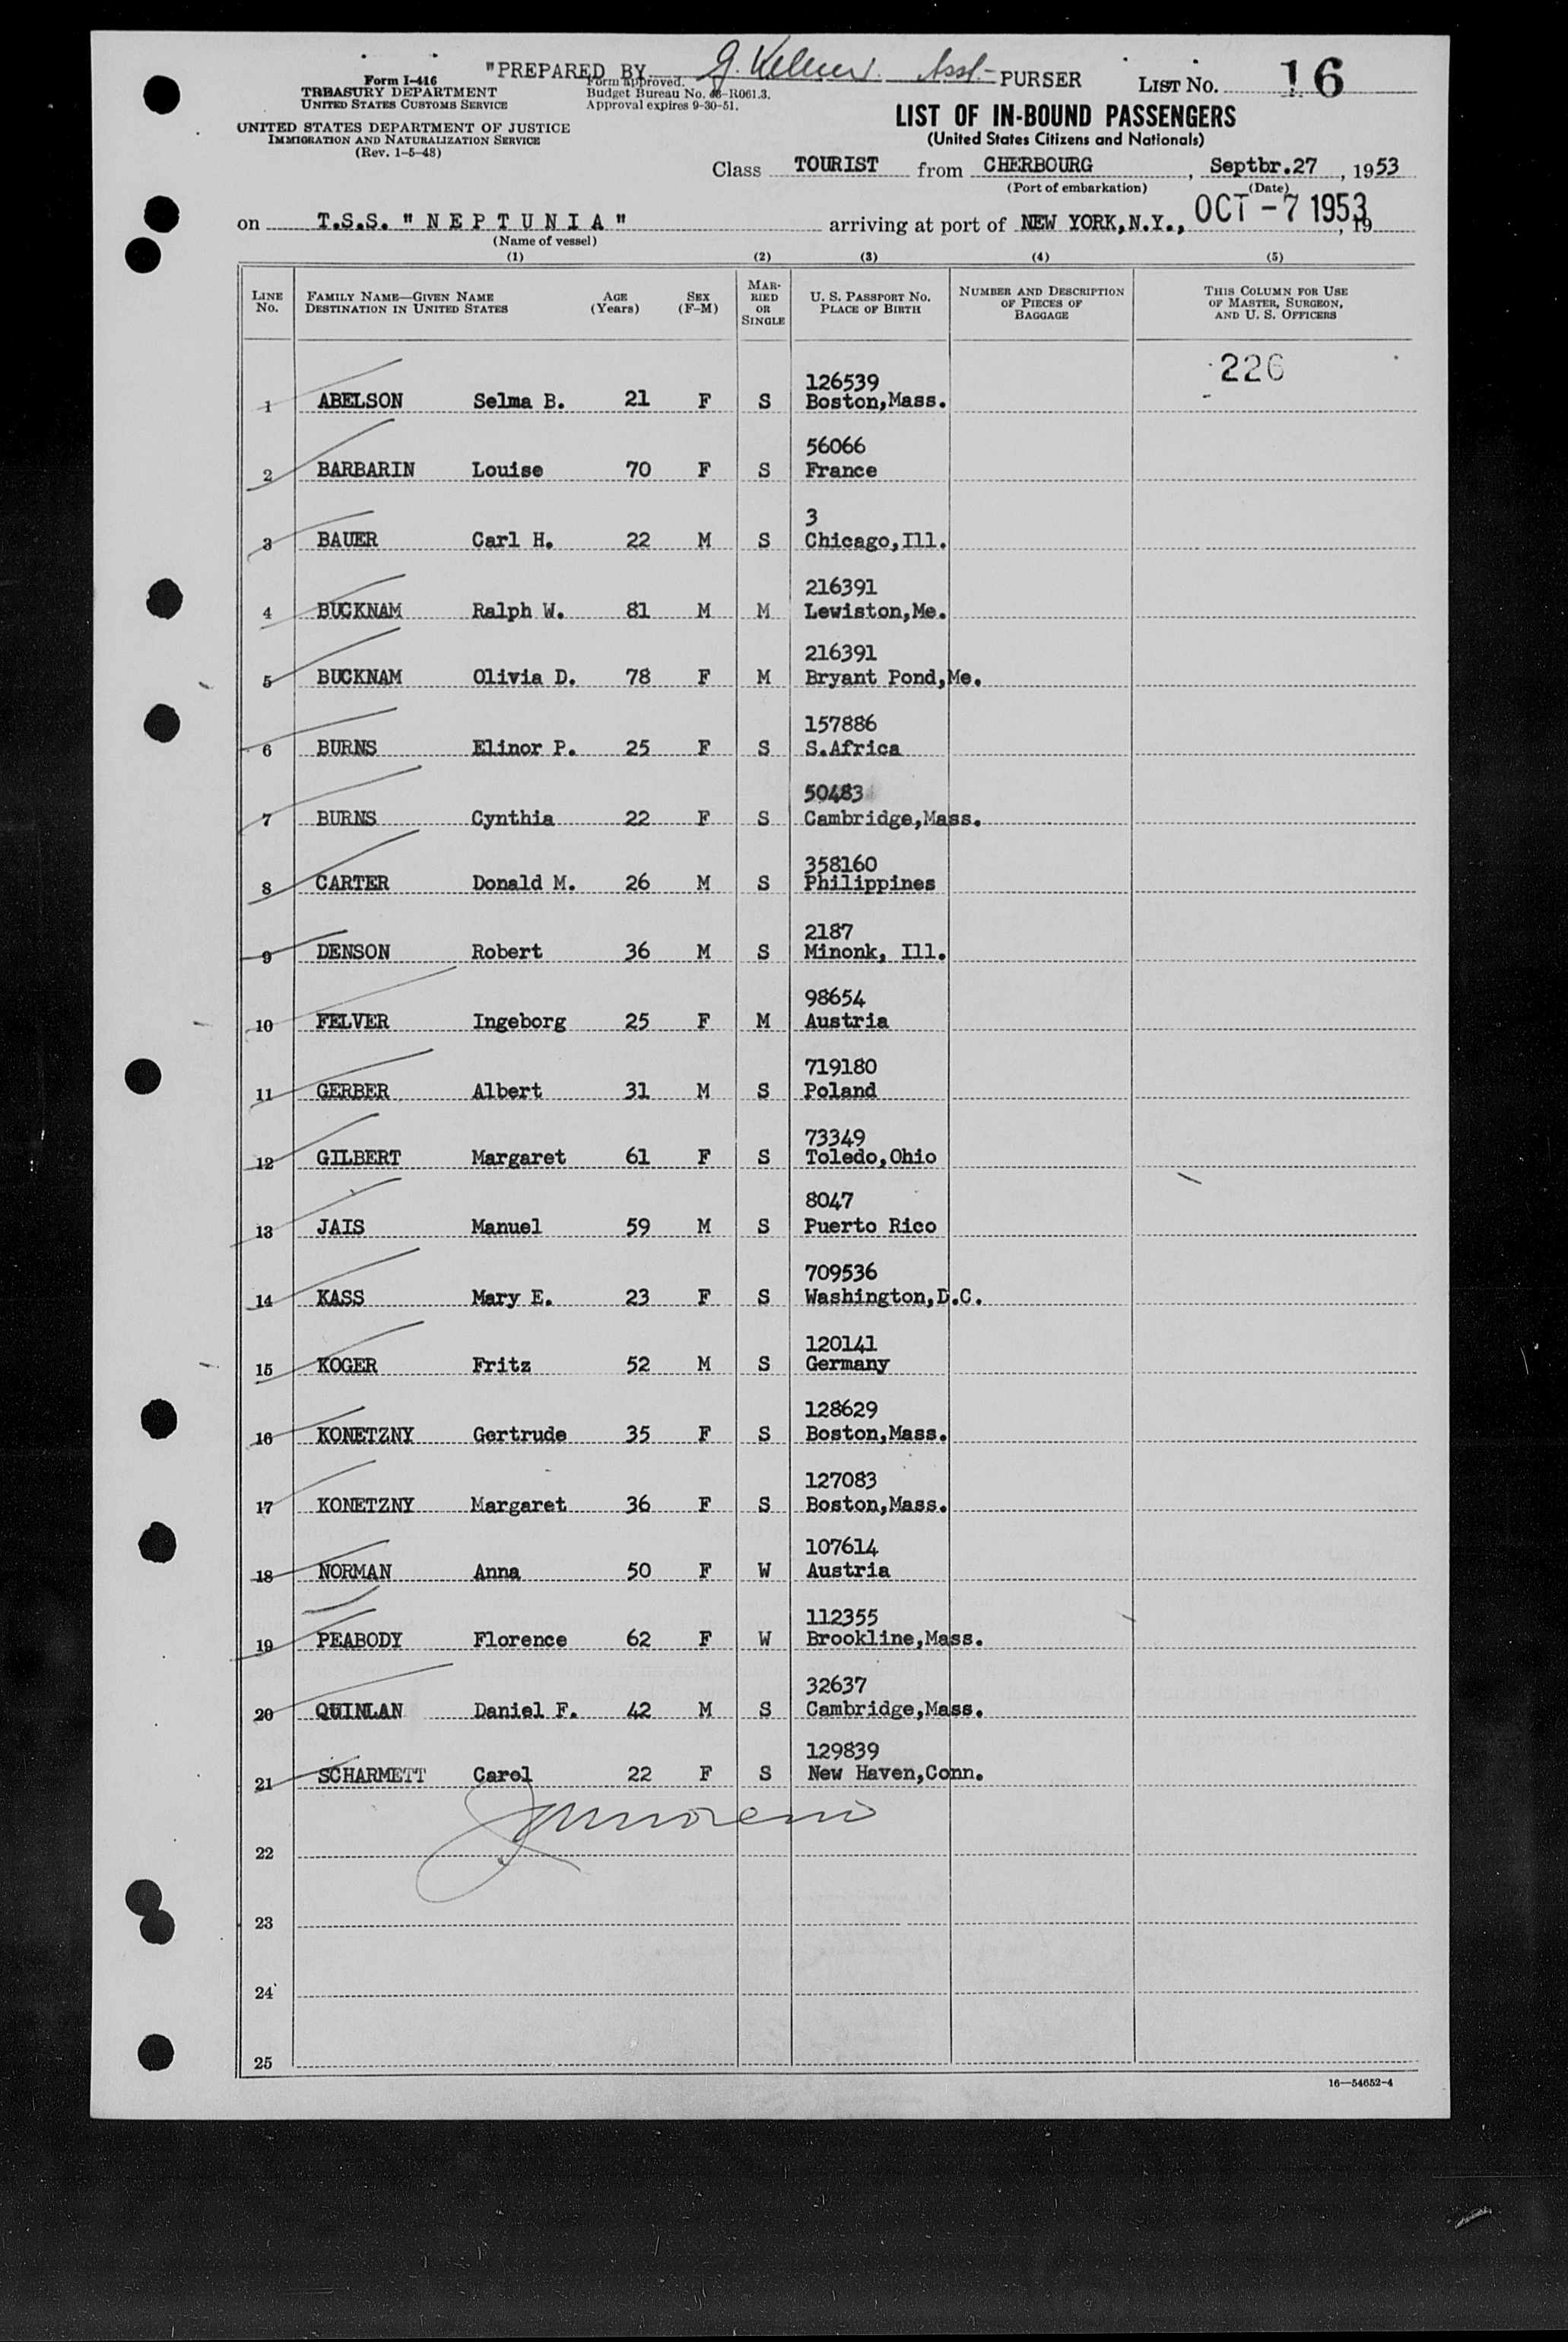 "PREPARED BY G. Asst- PURSER LIST NO. 16
Form I-416
TREASURY DEPARTMENT
UNITED STATES CUSTOMS SERVICE
Form approved.
Budget Bureau No. 43-R061.3.
Approval expires 9-30-51.
UNITED STATES DEPARTMENT OF JUSTICE
IMMIGRATION AND NATURALIZATION SERVICE
(Rev. 1-5-48)
LIST OF IN-BOUND PASSENGERS
(United States Citizens and Nationals)
Class TOURIST from CHERBOURG, Septbr.27, 1953
(Port of embarkation) (Date)
on T.S.S. " N E P T U N I A " arriving at port of NEW YORK,N.Y., OCT -7 1953, 19
(Name of vessel)
(1) (2) (3) (4) (5)
LINE NO. FAMILY NAME—GIVEN NAME DESTINATION IN UNITED STATES AGE (Years) SEX (F-M) MARRIED OR SINGLE U. S. PASSPORT NO. PLACE OF BIRTH NUMBER AND DESCRIPTION OF PIECES OF BAGGAGE THIS COLUMN FOR USE OF MASTER, SURGEON, AND U. S. OFFICERS
226
126539
1 ABELSON Selma B. 21 F S Boston,Mass.
56066
2 BARBARIN Louise 70 F S France
3
3 BAUER Carl H. 22 M S Chicago,Ill.
216391
4 BUCKNAM Ralph W. 81 M M Lewiston,Me.
216391
5 BUCKNAM Olivia D. 78 F M Bryant Pond,Me.
157886
6 BURNS Elinor P. 25 F S S.Africa
50483
7 BURNS Cynthia 22 F S Cambridge,Mass.
358160
8 CARTER Donald M. 26 M S Philippines
2187
9 DENSON Robert 36 M S Minonk, Ill.
98654
10 FELVER Ingeborg 25 F M Austria
719180
11 GERBER Albert 31 M S Poland
73349
12 GILBERT Margaret 61 F S Toledo,Ohio
8047
13 JAIS Manuel 59 M S Puerto Rico
709536
14 KASS Mary E. 23 F S Washington,D.C.
120141
15 KOGER Fritz 52 M S Germany
128629
16 KONETZNY Gertrude 35 F S Boston,Mass.
127083
17 KONETZNY Margaret 36 F S Boston,Mass.
107614
18 NORMAN Anna 50 F W Austria
112355
19 PEABODY Florence 62 F W Brookline,Mass.
32637
20 QUINLAN Daniel F. 42 M S Cambridge,Mass.
129839
21 SCHARMETT Carol 22 F S New Haven,Conn.
22
23
24
25
16—54652-4